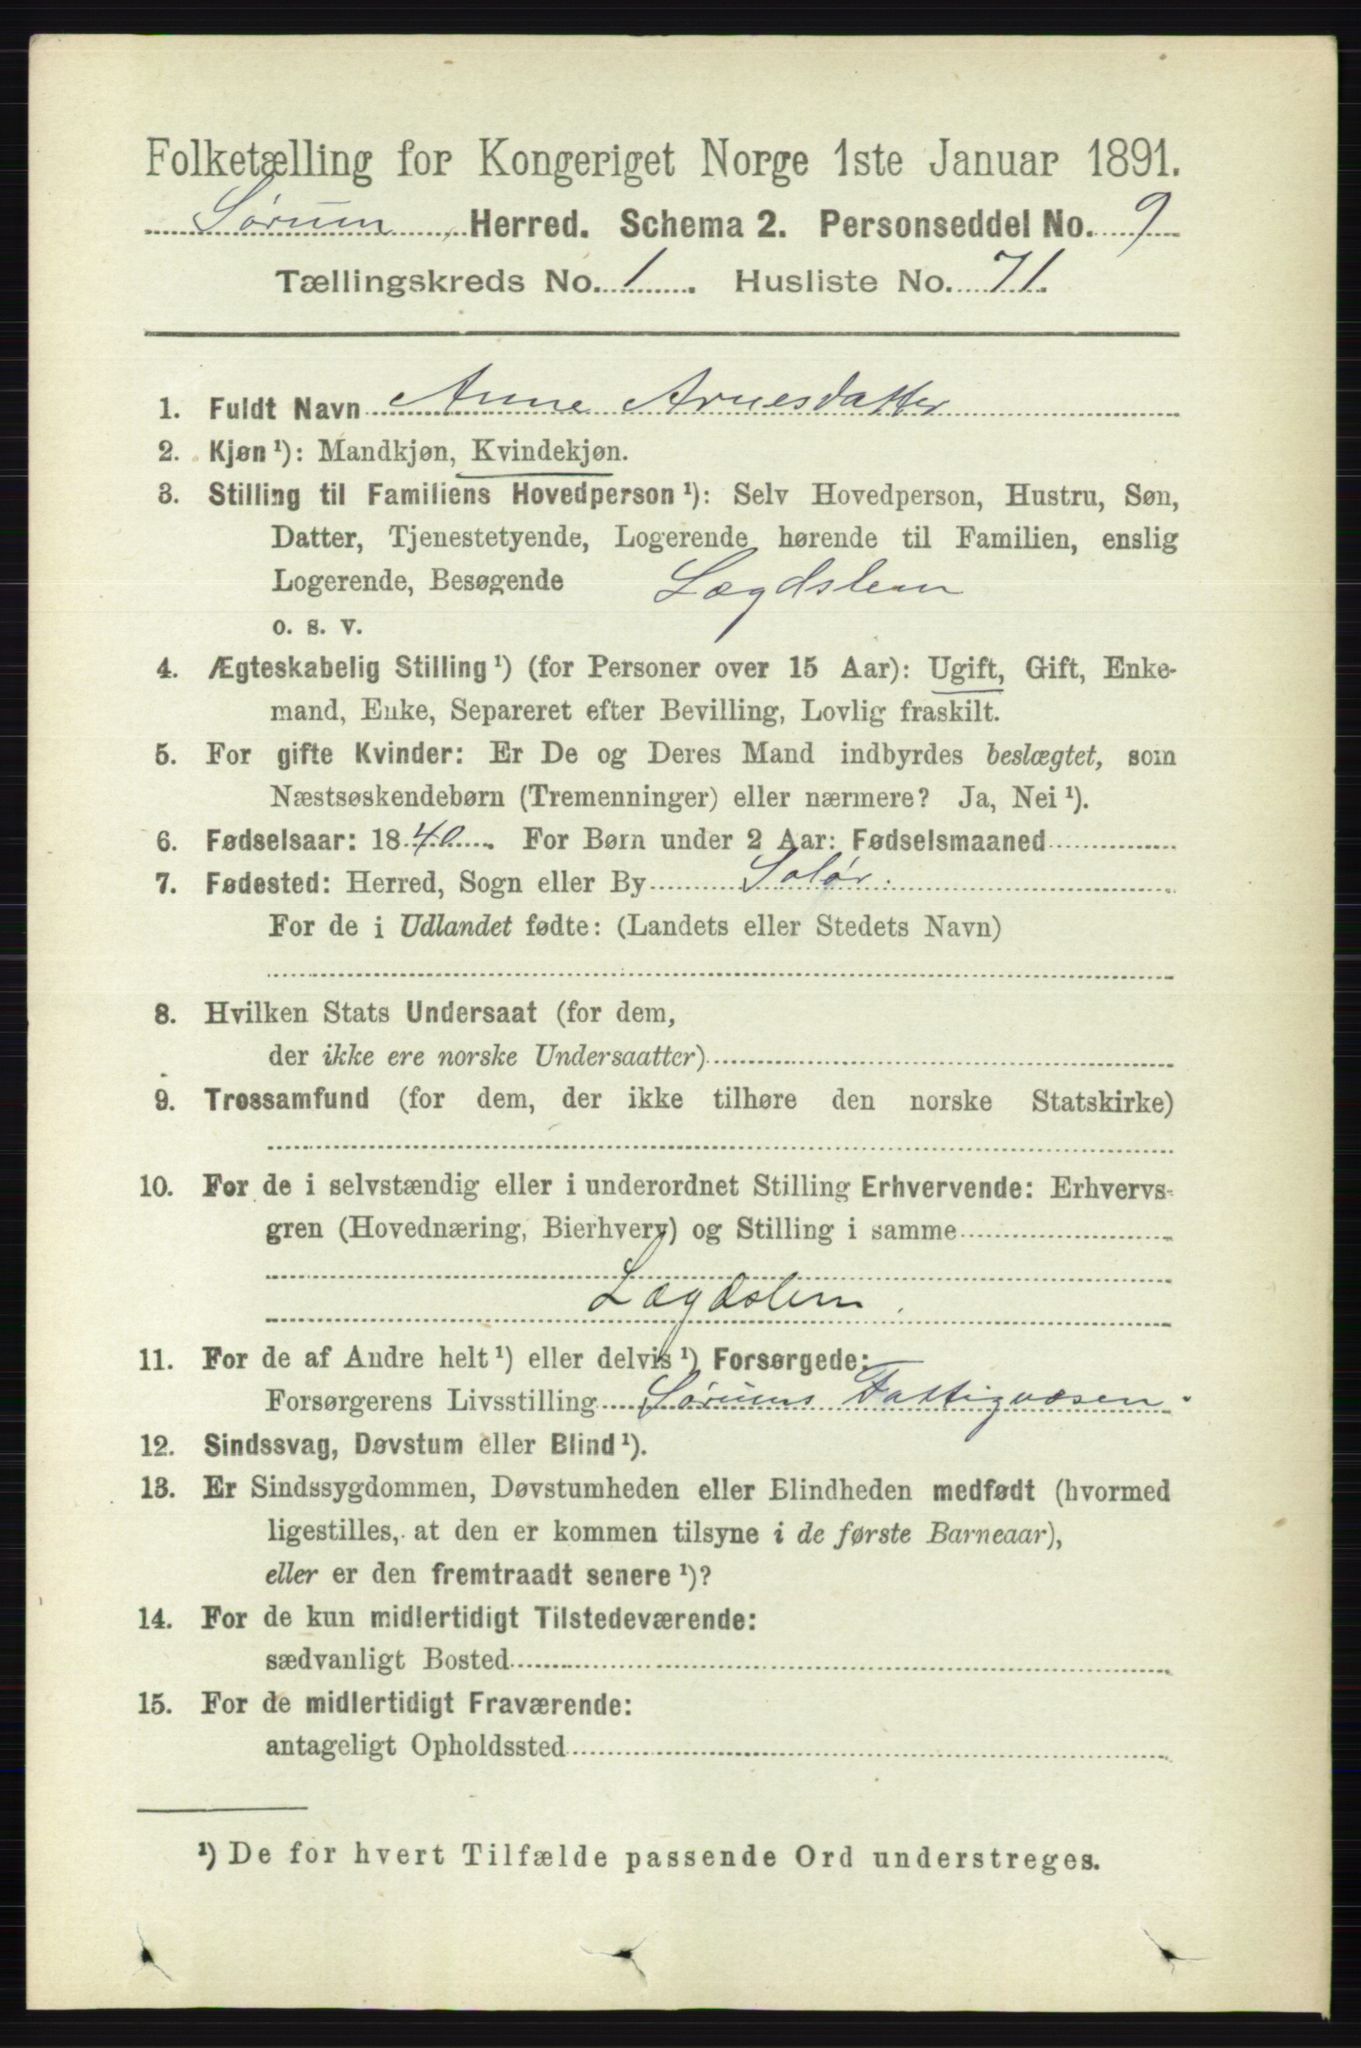 Folketælling for Kongeriget Norge 1ste Januar 1891.
Sørum Herred. Schema 2. Personseddel No. 9
Tællingskreds No. 1. Husliste No. 71.
1. Fuldt Navn Anne Arnesdatter
2. Kjøn ¹): Mandkjøn, Kvindekjøn.
3. Stilling til Familiens Hovedperson ¹): Selv Hovedperson, Hustru, Søn,
Datter, Tjenestetyende, Logerende hørende til Familien, enslig
Logerende, Besøgende Lægdslem
o. s. v.
4. Ægteskabelig Stilling ¹) (for Personer over 15 Aar): Ugift, Gift, Enke-
mand, Enke, Separeret efter Bevilling, Lovlig fraskilt.
5. For gifte Kvinder: Er De og Deres Mand indbyrdes beslægtet, som
Næstsøskendebørn (Tremenninger) eller nærmere? Ja, Nei ¹).
6. Fødselsaar: 1840. For Børn under 2 Aar: Fødselsmaaned
7. Fødested: Herred, Sogn eller By Solør.
For de i Udlandet fødte: (Landets eller Stedets Navn)
8. Hvilken Stats Undersaat (for dem,
der ikke ere norske Undersaatter)
9. Trossamfund (for dem, der ikke tilhøre den norske Statskirke)
10. For de i selvstændig eller i underordnet Stilling Erhvervende: Erhvervs-
gren (Hovednæring, Bierhverv) og Stilling i samme
Lægdslem.
11. For de af Andre helt ¹) eller delvis ¹) Forsørgede:
Forsørgerens Livsstilling Sørums Fattigvæsen.
12. Sindssvag, Døvstum eller Blind ¹).
13. Er Sindssygdommen, Døvstumheden eller Blindheden medfødt (hvormed
ligestilles, at den er kommen tilsyne i de første Barneaar),
eller er den fremtraadt senere ¹)?
14. For de kun midlertidigt Tilstedeværende:
sædvanligt Bosted
15. For de midlertidigt Fraværende:
antageligt Opholdssted
¹) De for hvert Tilfælde passende Ord understreges.